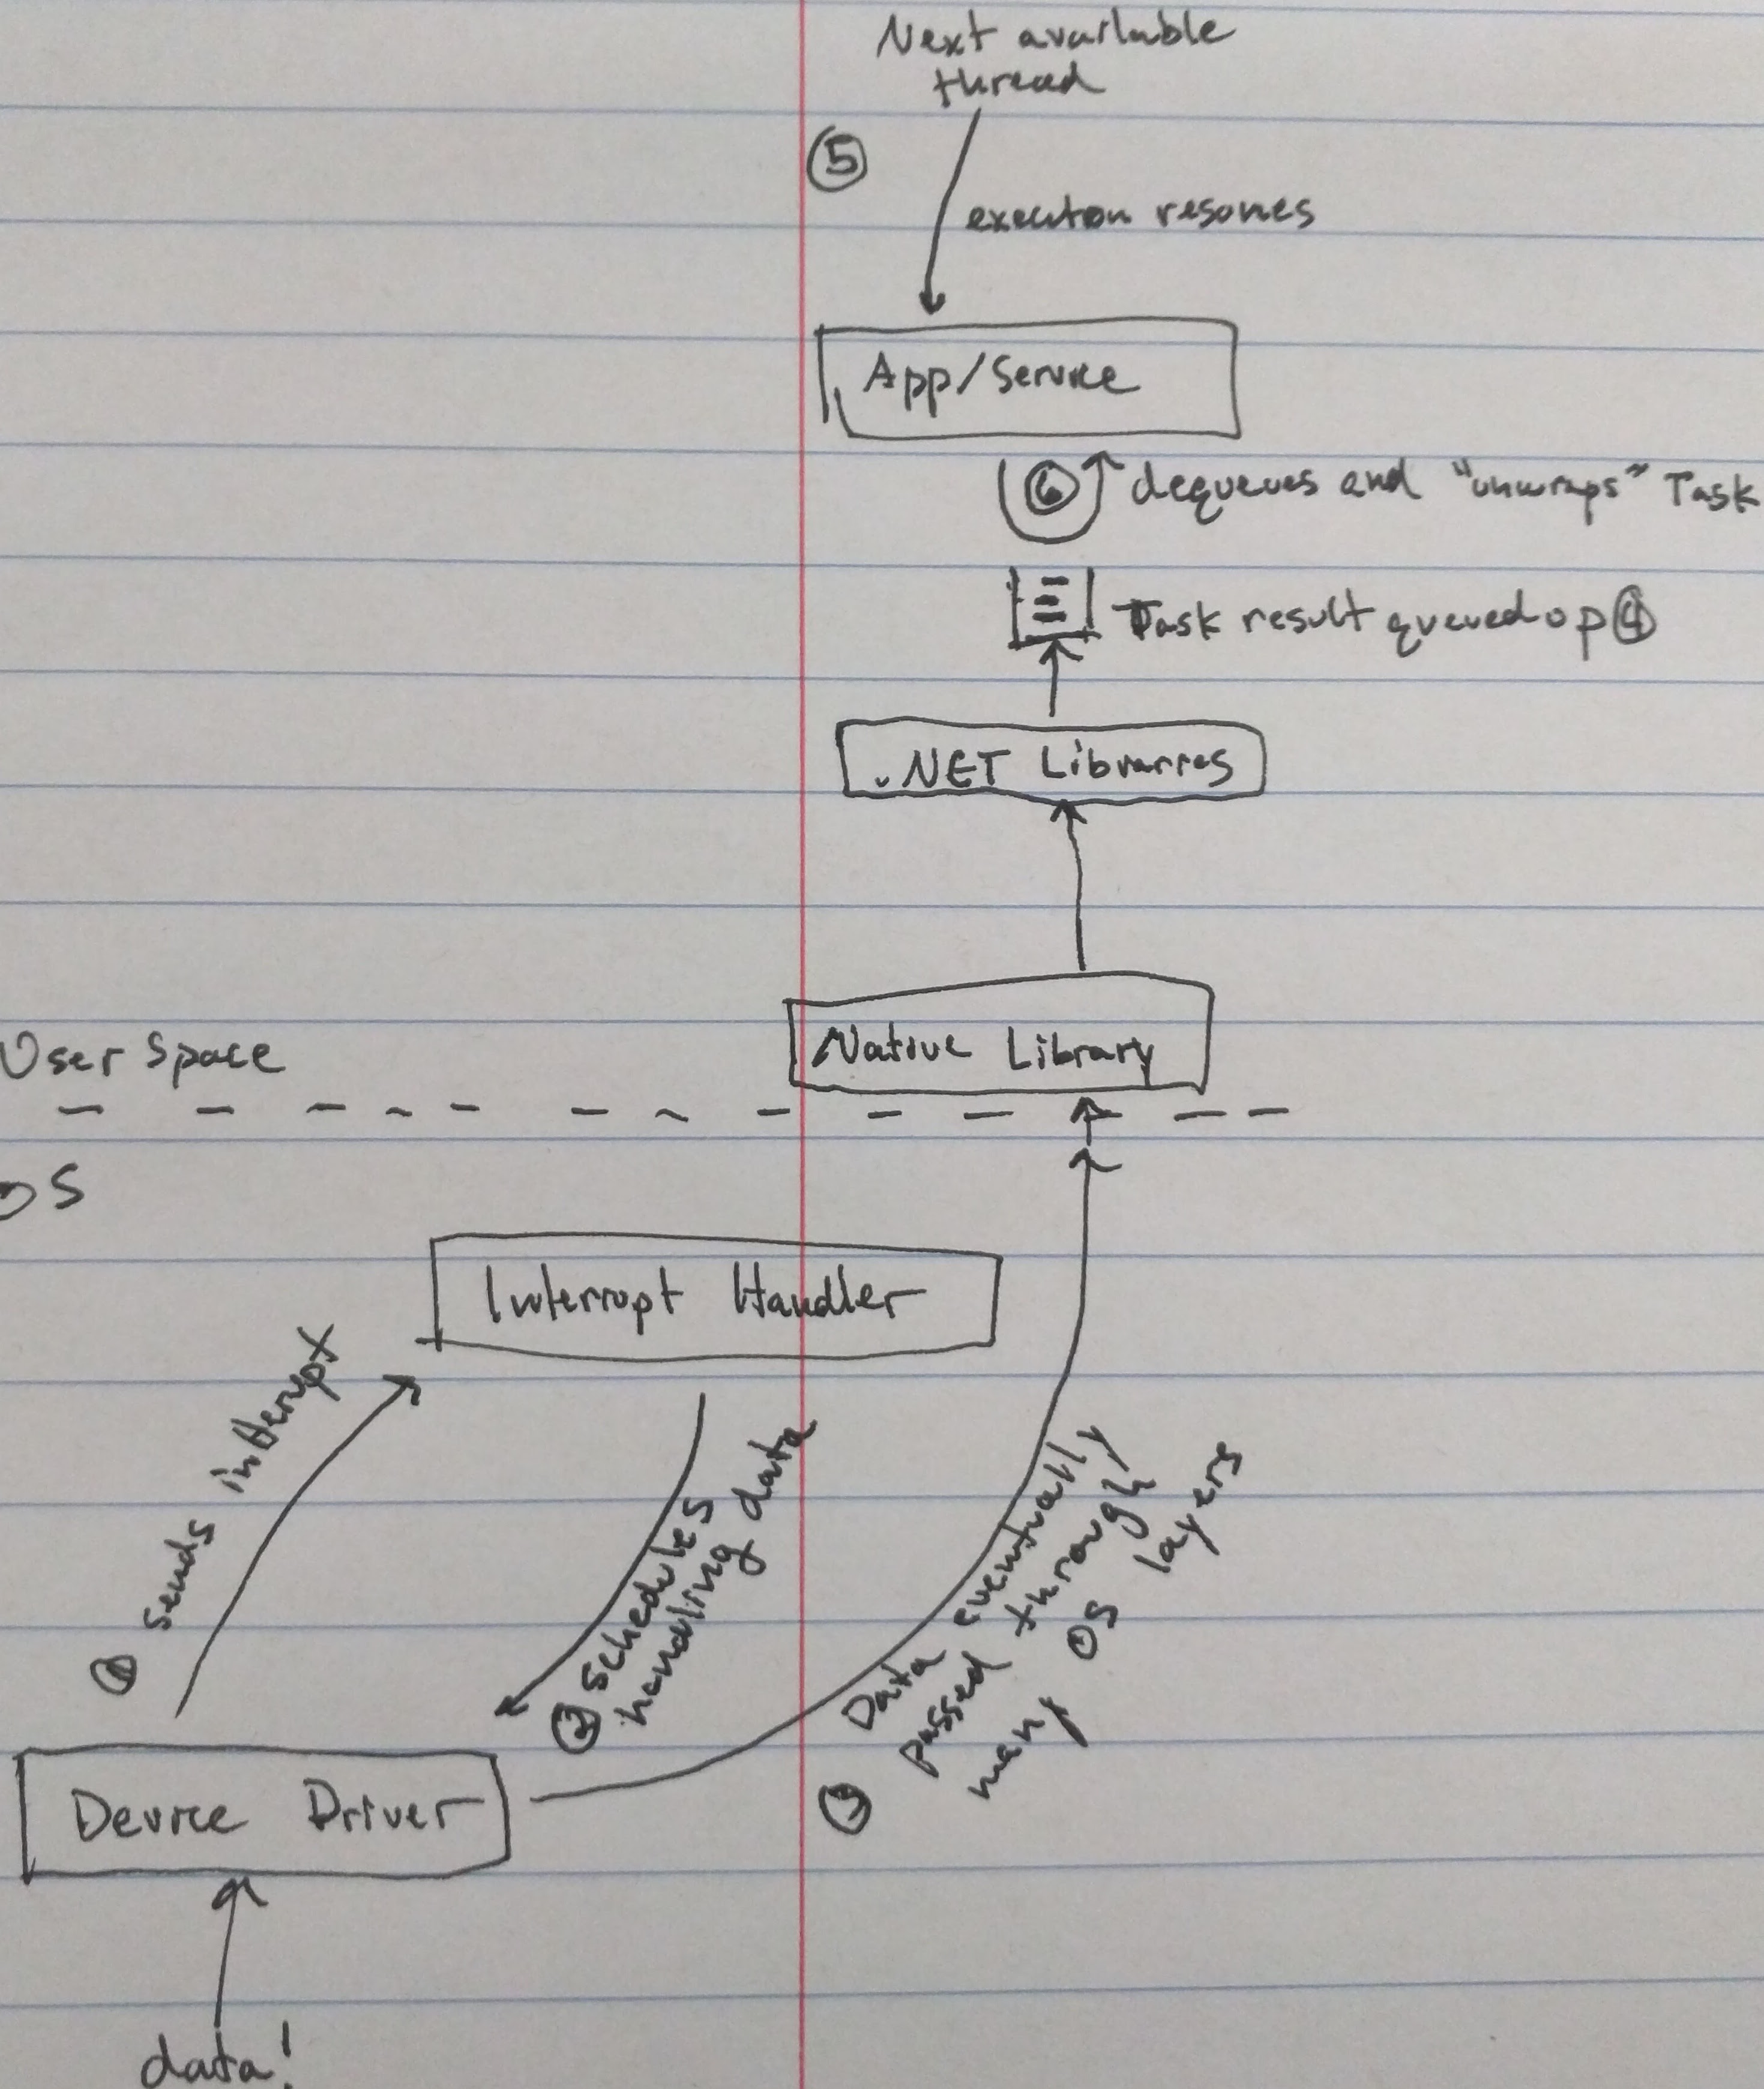 Next available
thread
⑤
execution resumes
App/Service
⑥ dequeues and "unwraps" Task
Task result queued up ④
.NET Libraries
Native Library
User Space
OS
Interrupt Handler
① sends interrupt
② schedules
handling data
③ Data eventually
passed through
many OS layers
Device Driver
data!